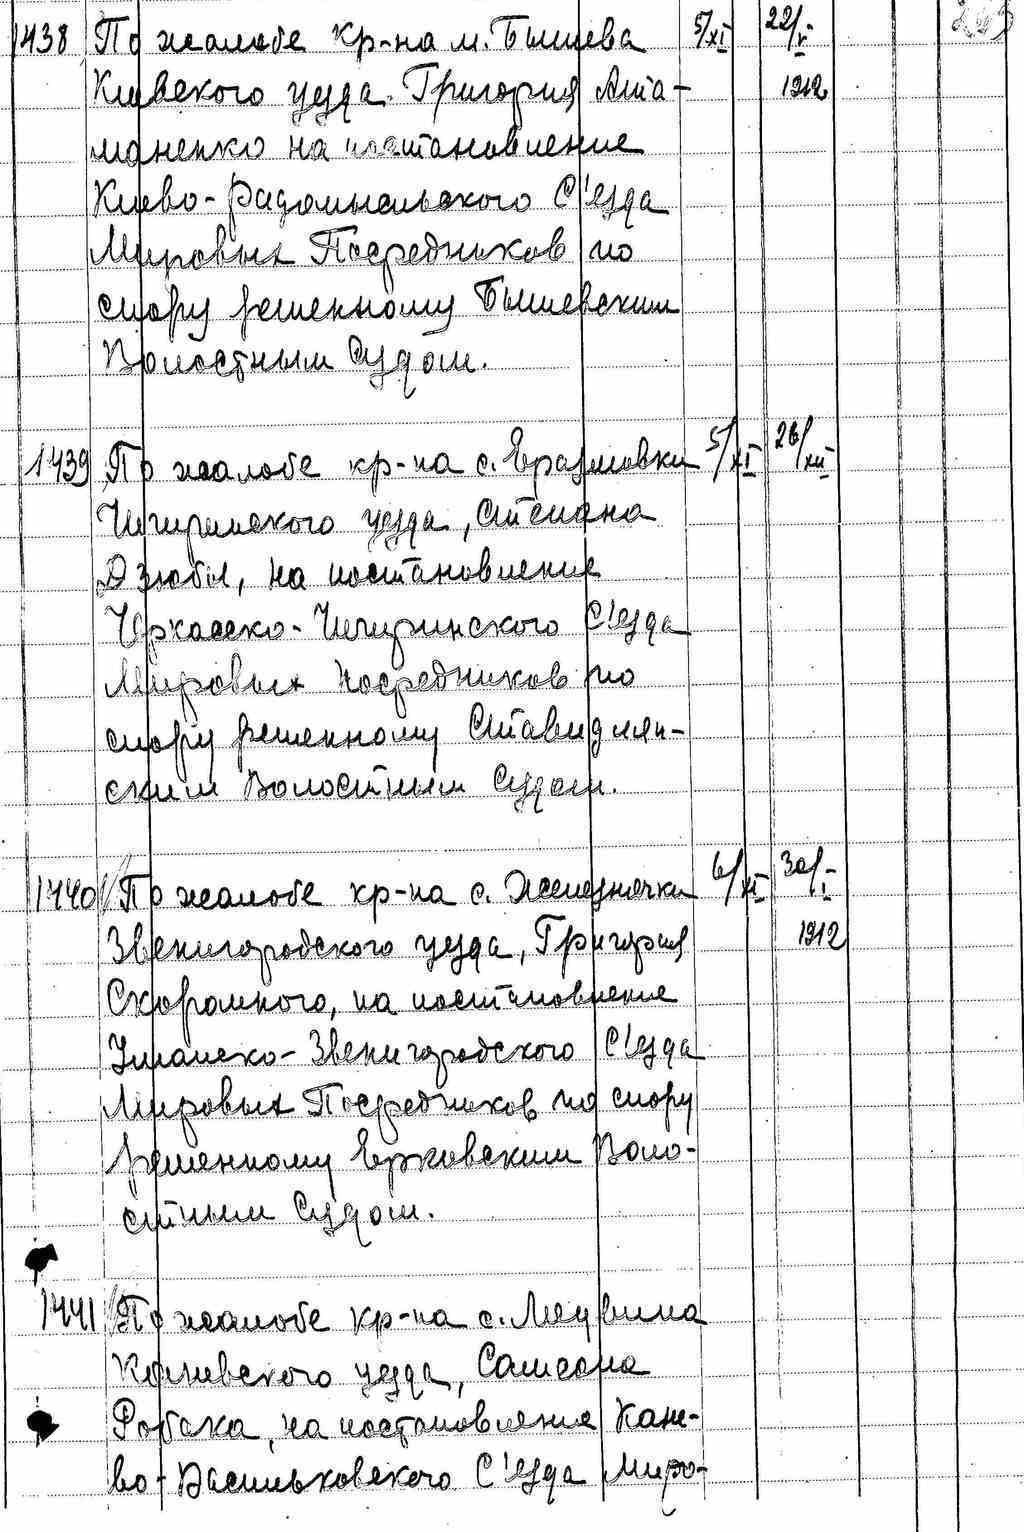 1438 По жалобе кр-на м. Бышева 5/XI 22/V
Киевского уезда Григория Ата- 1912
маненко на постановление
Киево-Радомысльского С'езда
Мировых Посредников по
спору решенному Бышевским
Волостным Судом.
1439 По жалобе кр-на с. Еразмовки 5/XI 26/XII
Чигиринского уезда, Степана
Дзюбы, на постановление
Черкасско-Чигиринского С'езда
Мировых Посредников по
спору решенному Ставидлян-
ским Волостным Судом.
1440 По жалобе кр-на с. Железнячки 6/XI 30/I
Звенигородского уезда, Григория 1912
Скоромного, на постановление
Уманско-Звенигородского С'езда
Мировых Посредников по спору
решенному Ерковским Воло-
стным Судом.
1441 По жалобе кр-на с. Медвина
Каневского уезда, Самсона
Робака, на постановление Кане-
во-Васильковского С'езда Миро-